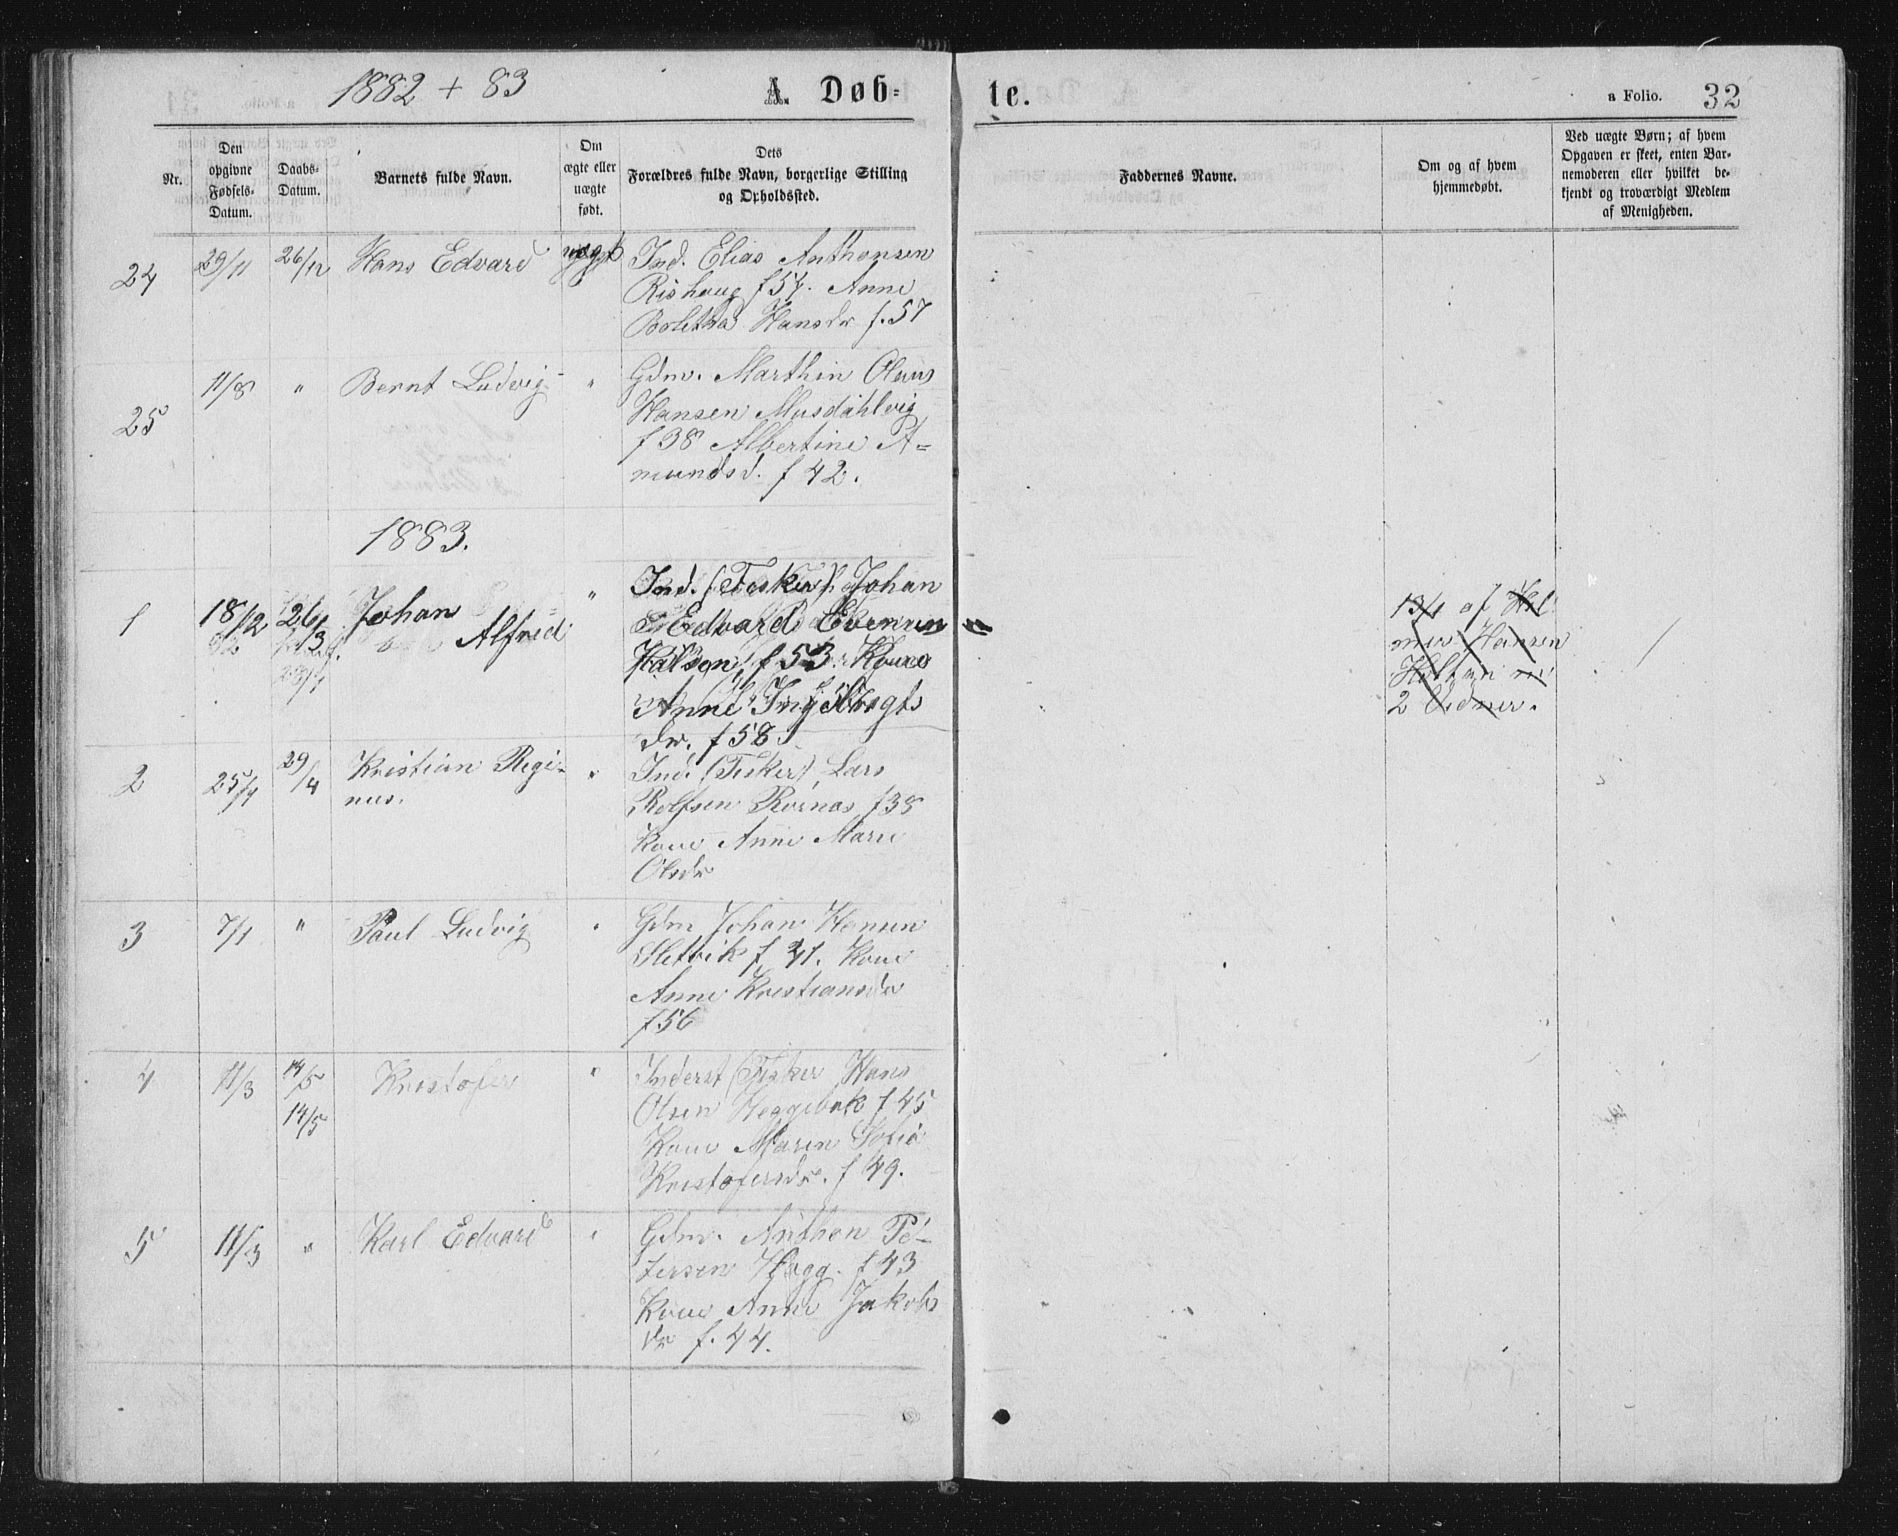 1882 + 83
A. Døb-
te.
a Folio. 32
Nr.
Den opgivne Fødsels-Datum.
Daabs-Datum.
Barnets fulde Navn.
Om ægte eller uægte født.
Dets Forældres fulde Navn, borgerlige Stilling og Opholdssted.
Faddernes Navne.
Om og af hvem hjemmedøbt.
Ved uægte Børn; af hvem Opgaven er skeet, enten Barnemoderen eller hvilket bekjendt og troværdigt Medlem af Menigheden.
24
29/11
26/12
Hans Edvard
Ind. Elias Anthonsen
Rishaug f 54. Anne
Boletha Hansdr f. 57
25
11/8
"
Bernt Ludvig
"
Gdm. Marthin Olaus
Hansen Musdahlvig
f 38 Albertine A-
mundsd. f 42.
1883.
1
18/2
26/3
Johan
Alfred
"
Ind. (Fisker) Johan
Edvard Evensen
f 53. Kone
Anne Ingebrigts
dr. f 58.
13/4 af
Hansen
2
2
25/4
29/4
Kristian Regi-
nus.
"
Ind. (Fisker) Lars
Rolfsen f 38
Kone Anne Marie
Olsdr
3
7/1
"
Paul Ludvig
"
Gdm Johan Hansen
Sletvik f 41. Kone
Anne Kristiansdr
f 56
4
11/3
14/5
14/5
Kristofer
"
Inderst (Fisker Hans
Olsen Heggebak f 45
Kone Maren Sofia
Kristofersdr. f 49.
5
11/3
"
Karl Edvard
"
Gdm. Anthon Pe-
tersen Hogg. f 43
Kone Anne Jakobs
dr f. 44.